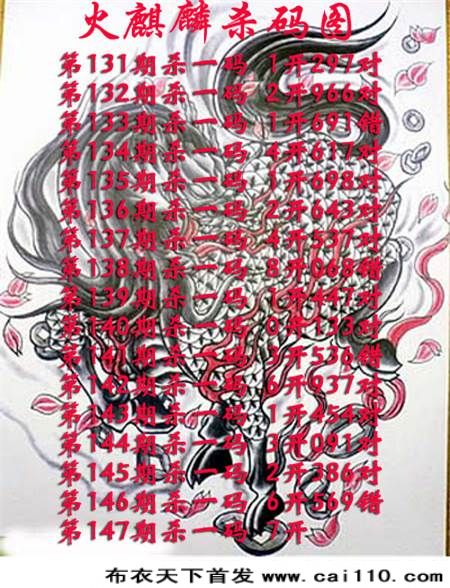 火麒麟杀码图
第131期杀一码 1开297对
第132期杀一码 2开966对
第133期杀一码 1开691错
第134期杀一码 4开617对
第135期杀一码 1开698对
第136期杀一码 2开643对
第137期杀一码 4开537对
第138期杀一码 8开068错
第139期杀一码 1开447对
第140期杀一码 0开133对
第141期杀一码 3开536错
第142期杀一码 6开937对
第143期杀一码 1开454对
第144期杀一码 3开091对
第145期杀一码 2开386对
第146期杀一码 6开569错
第147期杀一码 7开
布衣天下首发 www.cai110.com